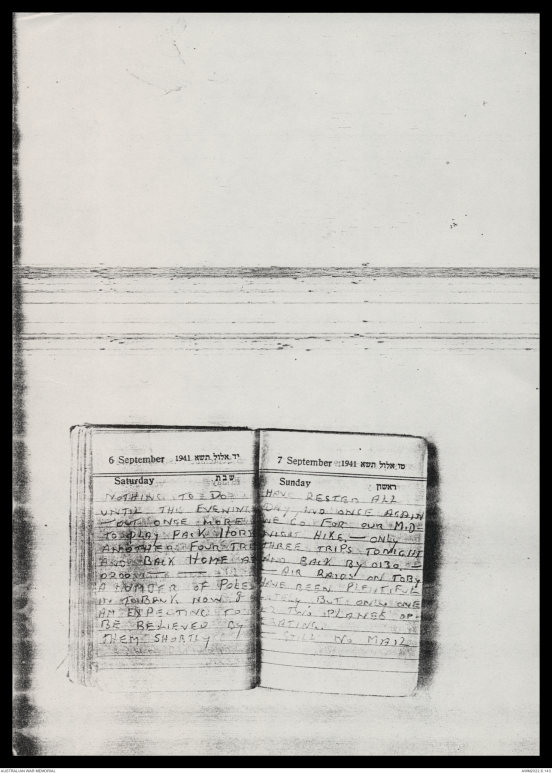 6 September 1941 יד אלול תשא
Saturday שבת
NOTHING TO DO
UNTIL THE EVENING
— OUT ONCE MORE
TO PLAY PACK HORS
ANOTHER FOUR TRE
AND BACK HOME AT
0200
A NUMBER OF POLES
IN TOBRUK NOW &
AM EXPECTING TO
BE RELIEVED BY
THEM SHORTLY
7 September 1941 טו אלול תשא
Sunday ראשון
HAVE RESTED ALL
DAY, AND ONCE AGAIN
WE GO FOR OUR MID-
NIGHT HIKE, — ONLY
THREE TRIPS TONIGHT
AND BACK BY 0130, —
— AIR RAIDS ON TOBY
HAVE BEEN PLENTIFUL
LATELY BUT ONLY ONE
OR TWO PLANES OP-
ERATING.
— STILL NO MAIL
AUSTRALIAN WAR MEMORIAL